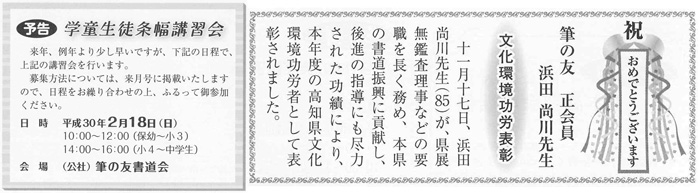 予告 学童生徒条幅講習会
来年、例年より少し早いですが、下記の日程で、
上記の講習会を行います。
募集方法については、来月号に掲載いたします
ので、日程をお繰り合わせの上、ふるって御参加
ください。
日 時 平成30年2月18日(日)
10:00~12:00(保幼~小3)
14:00~16:00(小4~中学生)
会 場 (公社)筆の友書道会
祝
おめでとうございます
筆の友 正会員
浜田 尚川先生
文化環境功労表彰
十一月十七日、浜田
尚川先生(85)が、県展
無鑑査理事などの要
職を長く務め、本県
の書道振興に貢献し、
後進の指導にも尽力
された功績により、
本年度の高知県文化
環境功労者として表
彰されました。